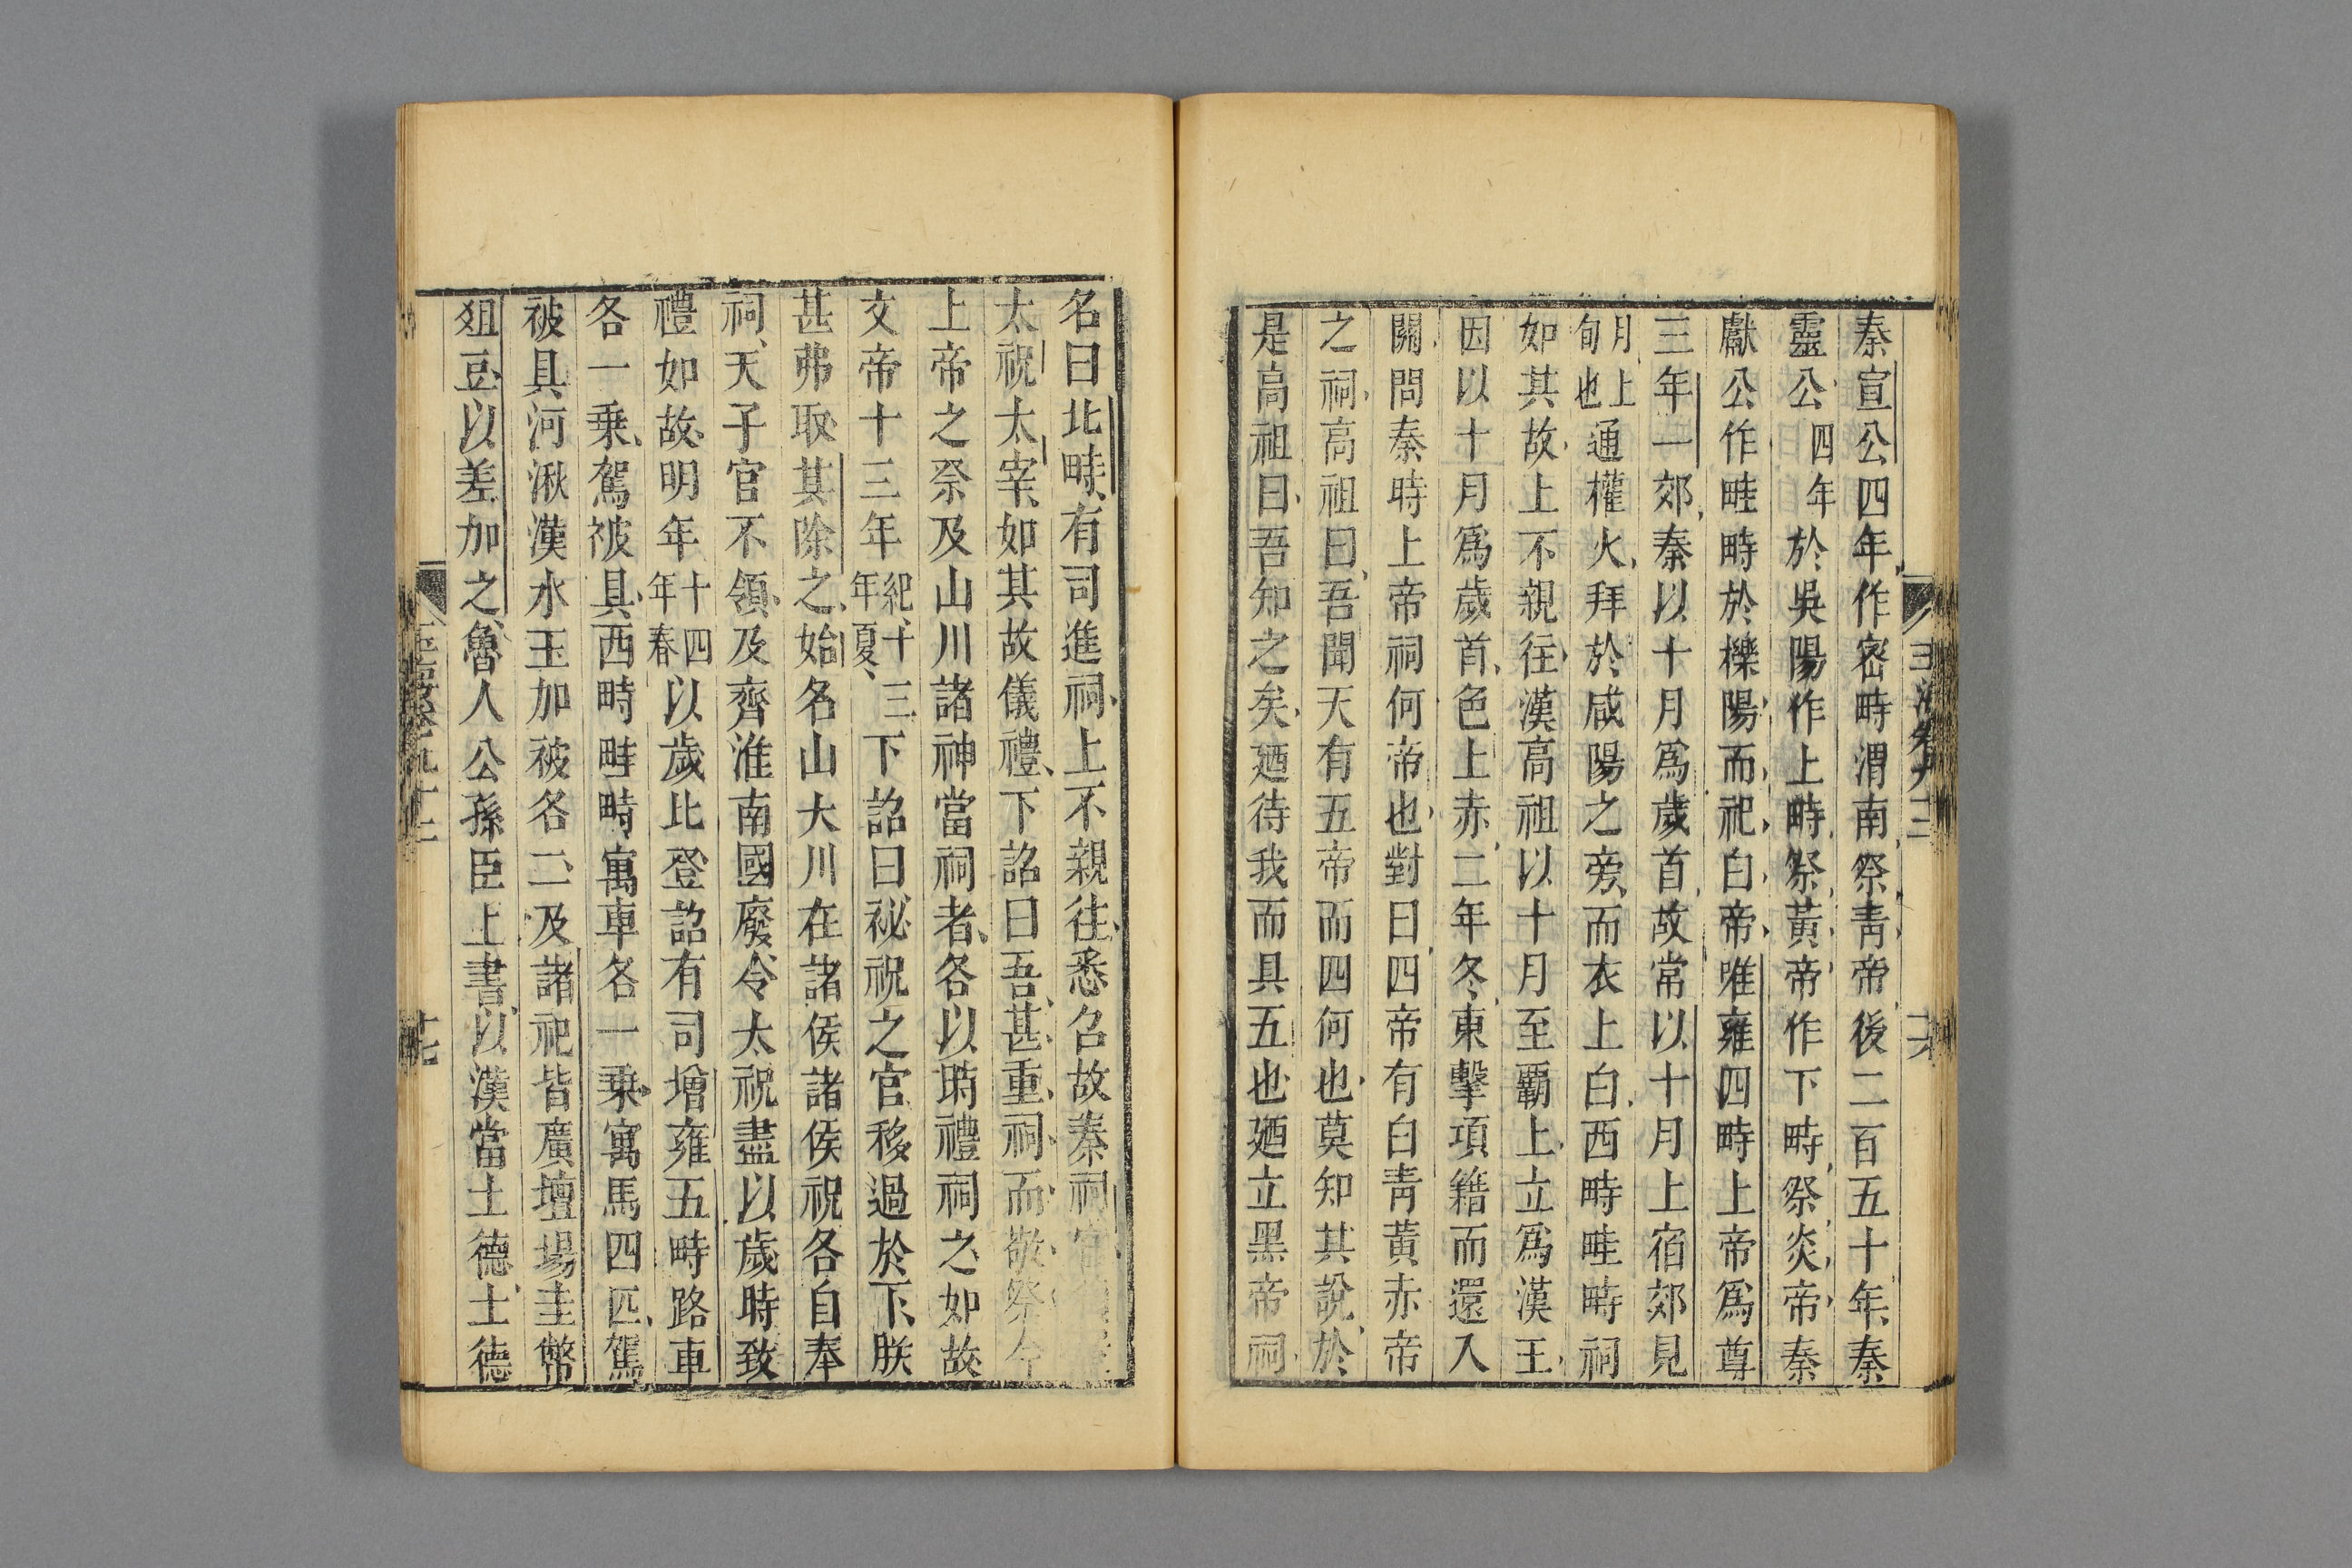 秦宣公四年作密畤渭南祭青帝後二百五十年秦
靈公四年於吳陽作上畤祭黃帝作下畤祭炎帝秦
獻公作畦畤於櫟陽而祀白帝唯雍四畤上帝爲尊
三年一郊秦以十月爲歲首故常以十月上宿郊見
月上旬也通權火拜於咸陽之旁而衣上白西畤畦畤祠
如其故上不親往漢高祖以十月至霸上立爲漢王
因以十月爲歲首色上赤二年冬東擊項籍而還入
關問秦時上帝祠何帝也對曰四帝有白青黃赤帝
之祠高祖曰吾聞天有五帝而四何也莫知其說於
是高祖曰吾知之矣廼待我而具五也廼立黑帝祠
名曰北畤有司進祠上不親往悉召故秦祠官
太祝太宰如其故儀禮下詔曰吾甚重祠而敬祭今
上帝之祭及山川諸神當祠者各以時禮祠之如故
文帝十三年紀十三年夏下詔曰祕祝之官移過於下朕
甚弗取其除之始名山大川在諸侯諸侯祝各自奉
祠天子官不領及齊淮南國廢令太祝盡以歲時致
禮如故明年十四年春以歲比登詔有司增雍五畤路車
各一乗駕被具西畤畦畤寓車各一乗寓馬四匹駕
被具河湫漢水玉加被各二及諸祀皆廣壇場圭幣
俎豆以差加之魯人公孫臣上書以漢當土德土德